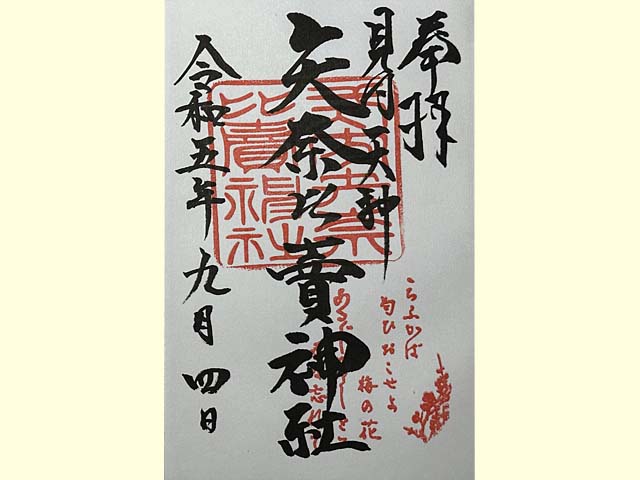 奉拝
見付天神
矢奈比賣神社
令和五年九月四日
比賣神社
こちふかば
匂ひおこせよ
梅の花
あるじなしとて
忘れ